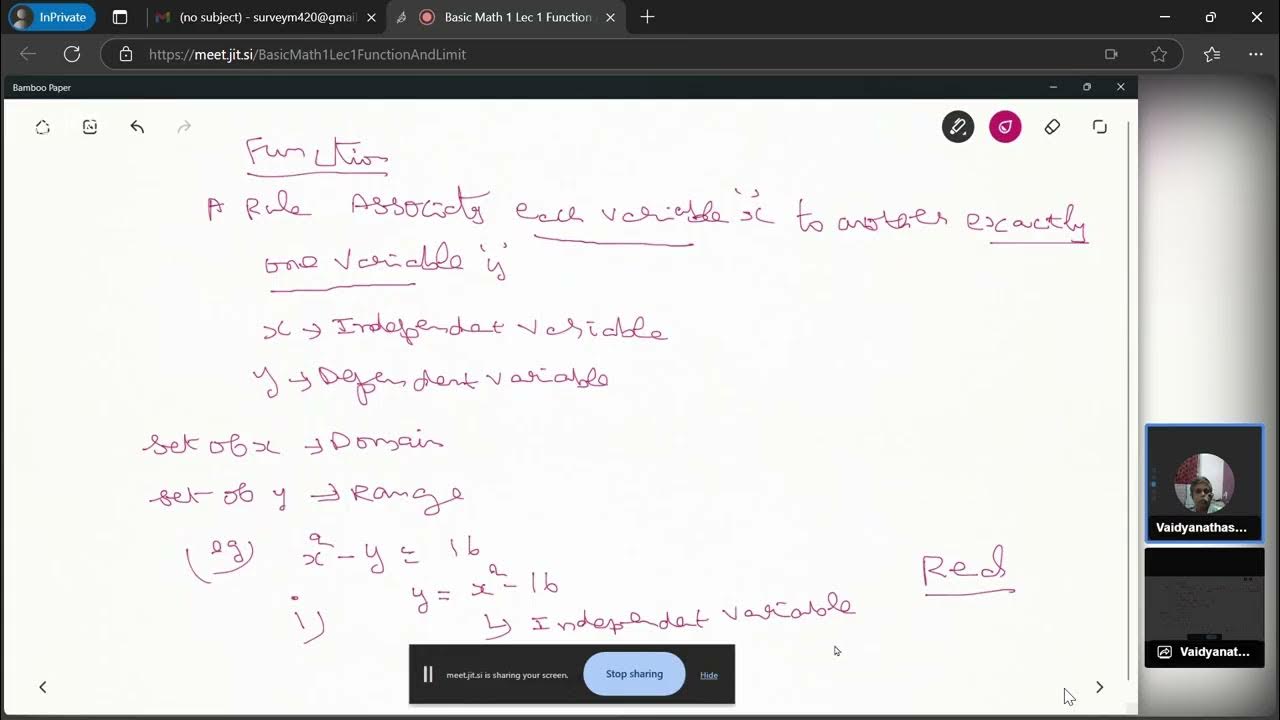 InPrivate
(no subject) - surveym420@gmai
Basic Math 1 Lec 1 Function
https://meet.jit.si/BasicMath1Lec1FunctionAndLimit
Bamboo Paper
Function
A Rule Associates each variable 'x' to another exactly
one variable 'y'
x → Independent variable
y → Dependent variable
set of x → Domain
set of y → Range
(eg) x² - y = 16
i) y = x² - 16
↳ Independent variable
Red
meet.jit.si is sharing your screen.
Stop sharing
Hide
Vaidyanathas...
Vaidyanat...